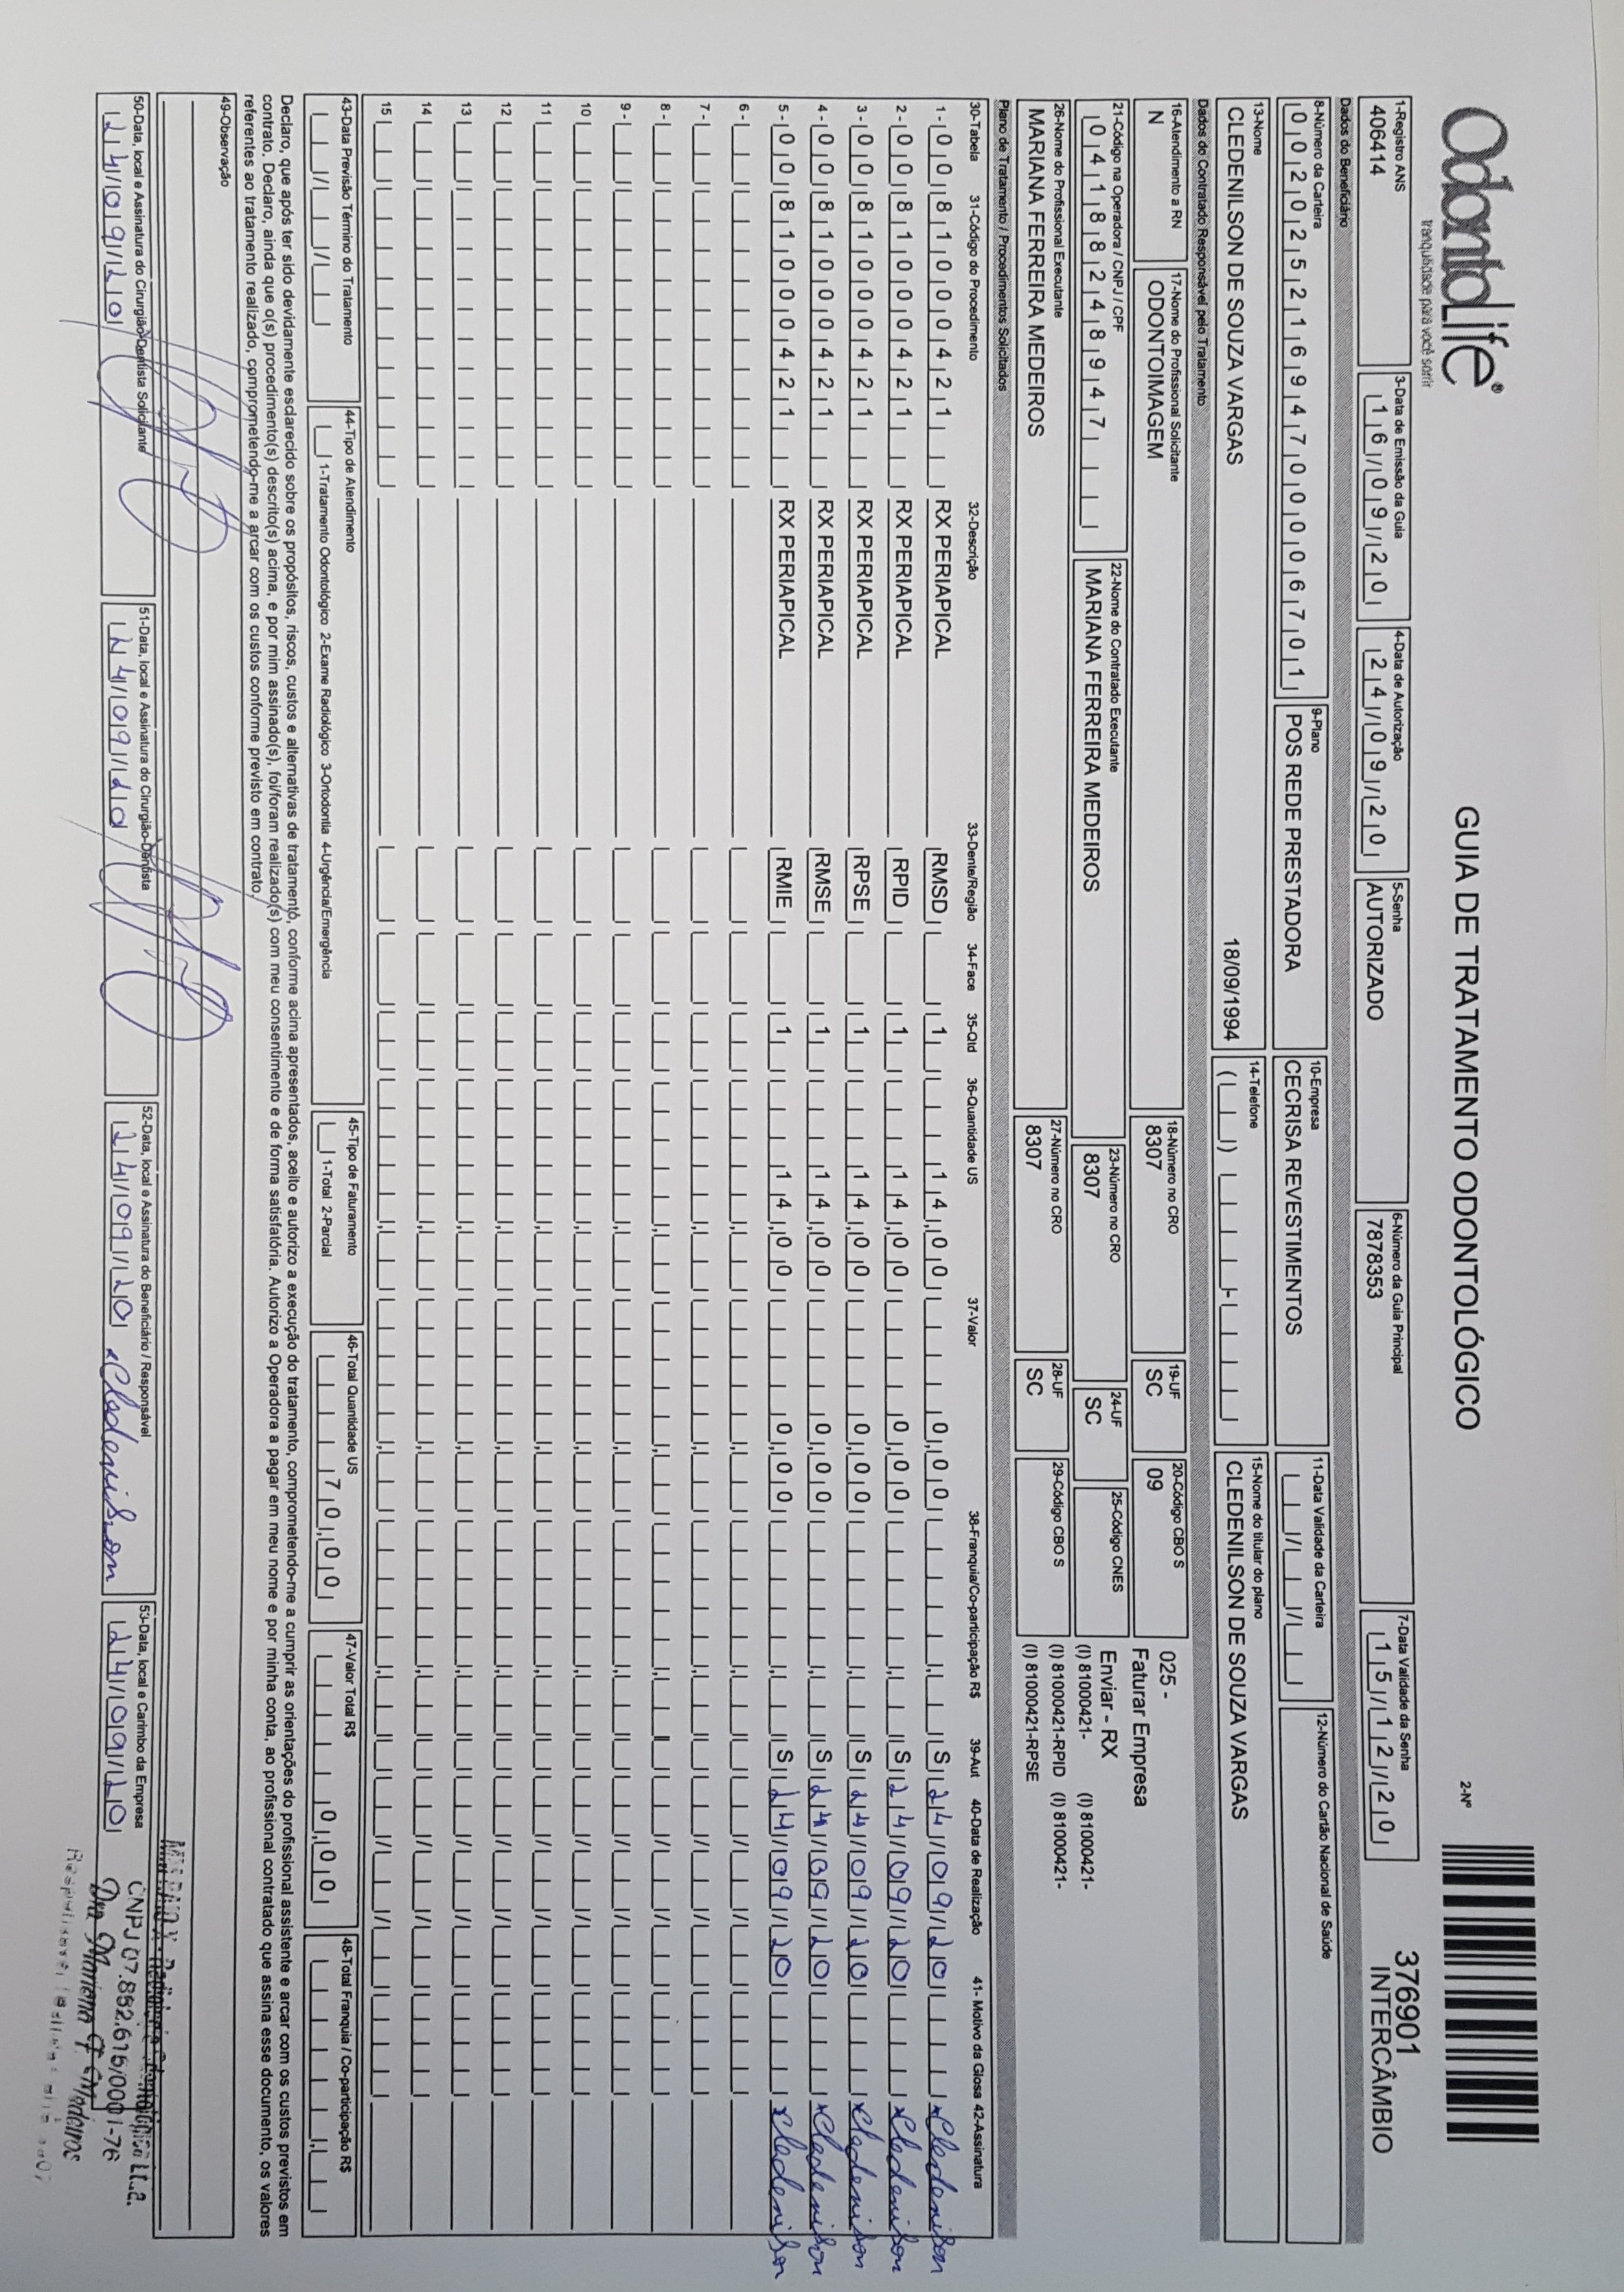 OdontoLife®
tranquilidade para você sorrir
GUIA DE TRATAMENTO ODONTOLÓGICO
2-Nº
376901
INTERCÂMBIO
1-Registro ANS
406414
3-Data de Emissão da Guia
16/09/20
4-Data de Autorização
24/09/20
5-Senha
AUTORIZADO
6-Número da Guia Principal
7878353
7-Data Validade da Senha
15/12/20
Dados do Beneficiário
8-Número da Carteira
00202521694700006701
9-Plano
POS REDE PRESTADORA
10-Empresa
CECRISA REVESTIMENTOS
11-Data Validade da Carteira
12-Número do Cartão Nacional de Saúde
13-Nome
CLEDENILSON DE SOUZA VARGAS 18/09/1994
14-Telefone
15-Nome do titular do plano
CLEDENILSON DE SOUZA VARGAS
Dados do Contratado Responsável pelo Tratamento
16-Atendimento a RN
N
17-Nome do Profissional Solicitante
ODONTOIMAGEM
18-Número no CRO
8307
19-UF
SC
20-Código CBO S
09
025 -
Faturar Empresa
21-Código na Operadora / CNPJ / CPF
04188248947
22-Nome do Contratado Executante
MARIANA FERREIRA MEDEIROS
23-Número no CRO
8307
24-UF
SC
25-Código CNES
Enviar - RX
(I) 81000421- (I) 81000421-
(I) 81000421-RPID (I) 81000421-
(I) 81000421-RPSE
26-Nome do Profissional Executante
MARIANA FERREIRA MEDEIROS
27-Número no CRO
8307
28-UF
SC
29-Código CBO S
Plano de Tratamento / Procedimentos Solicitados
30-Tabela 31-Código do Procedimento 32-Descrição 33-Dente/Região 34-Face 35-Qtd 36-Quantidade US 37-Valor 38-Franquia/Co-participação R$ 39-Aut 40-Data de Realização 41- Motivo da Glosa 42-Assinatura
1- 00 81000421 RX PERIAPICAL RMSD 1 14,00 0,00 S 24/09/20 Cledenilson
2- 00 81000421 RX PERIAPICAL RPID 1 14,00 0,00 S 24/09/20 Cledenilson
3- 00 81000421 RX PERIAPICAL RPSE 1 14,00 0,00 S 24/09/20 Cledenilson
4- 00 81000421 RX PERIAPICAL RMSE 1 14,00 0,00 S 24/09/20 Cledenilson
5- 00 81000421 RX PERIAPICAL RMIE 1 14,00 0,00 S 24/09/20 Cledenilson
6-
7-
8-
9-
10
11
12
13
14
15
43-Data Previsão Término do Tratamento
44-Tipo de Atendimento
1-Tratamento Odontológico 2-Exame Radiológico 3-Ortodontia 4-Urgência/Emergência
45-Tipo de Faturamento
1-Total 2-Parcial
46-Total Quantidade US
70,00
47-Valor Total R$
0,00
48-Total Franquia / Co-participação R$
Declaro, que após ter sido devidamente esclarecido sobre os propósitos, riscos, custos e alternativas de tratamento, conforme acima apresentados, aceito e autorizo a execução do tratamento, comprometendo-me a cumprir as orientações do profissional assistente e arcar com os custos previstos em
contrato. Declaro, ainda que o(s) procedimento(s) descrito(s) acima, e por mim assinado(s), foi/foram realizado(s) com meu consentimento e de forma satisfatória. Autorizo a Operadora a pagar em meu nome e por minha conta, ao profissional contratado que assina esse documento, os valores
referentes ao tratamento realizado, comprometendo-me a arcar com os custos conforme previsto em contrato.
49-Observação
50-Data, local e Assinatura do Cirurgião-Dentista Solicitante
24/09/20
51-Data, local e Assinatura do Cirurgião-Dentista
24/09/20
52-Data, local e Assinatura do Beneficiário / Responsável
24/09/20 Cledenilson
53-Data, local e Carimbo da Empresa
24/09/20
CNPJ 07.882.615/0001-76
Dra Mariana F Medeiros